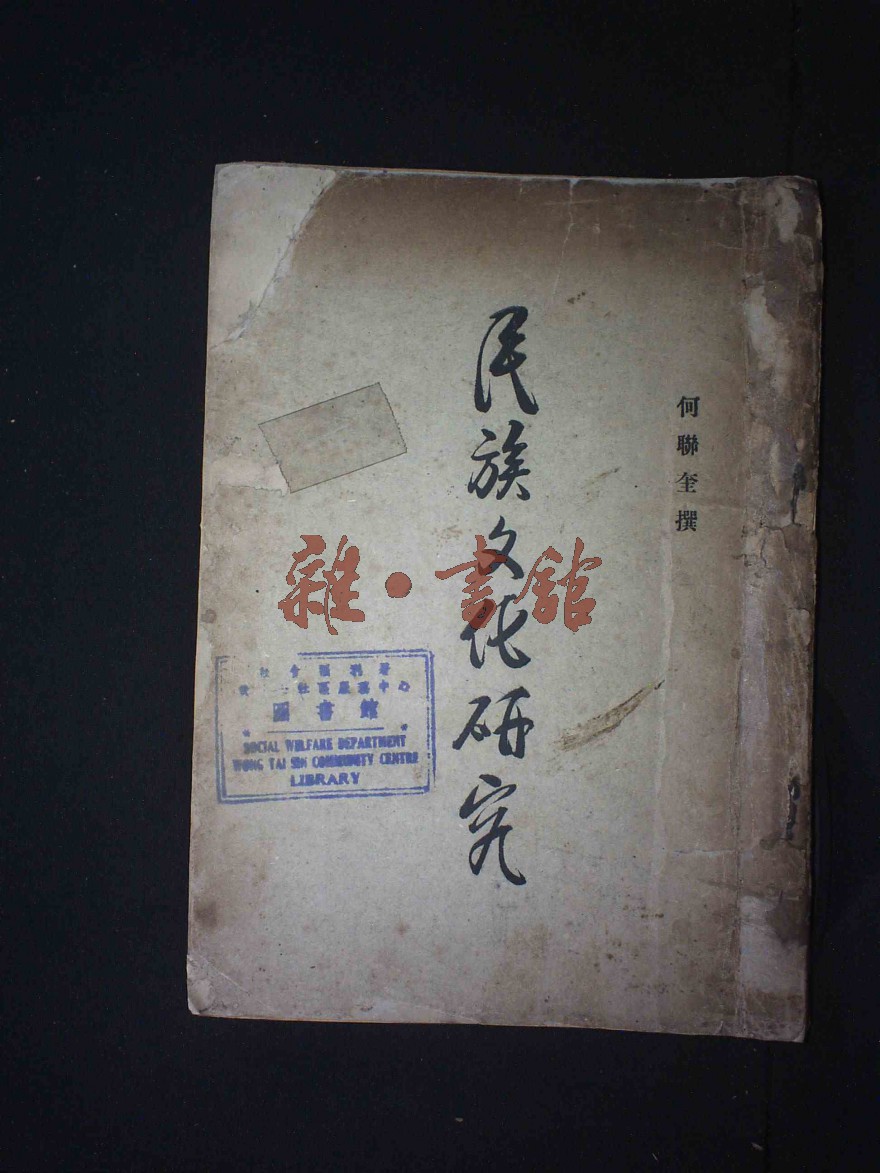 何聯奎撰
民族文化研究
雜·書館
社會福利署
社區服務中心
圖書館
SOCIAL WELFARE DEPARTMENT
WONG TAI SIN COMMUNITY CENTRE
LIBRARY